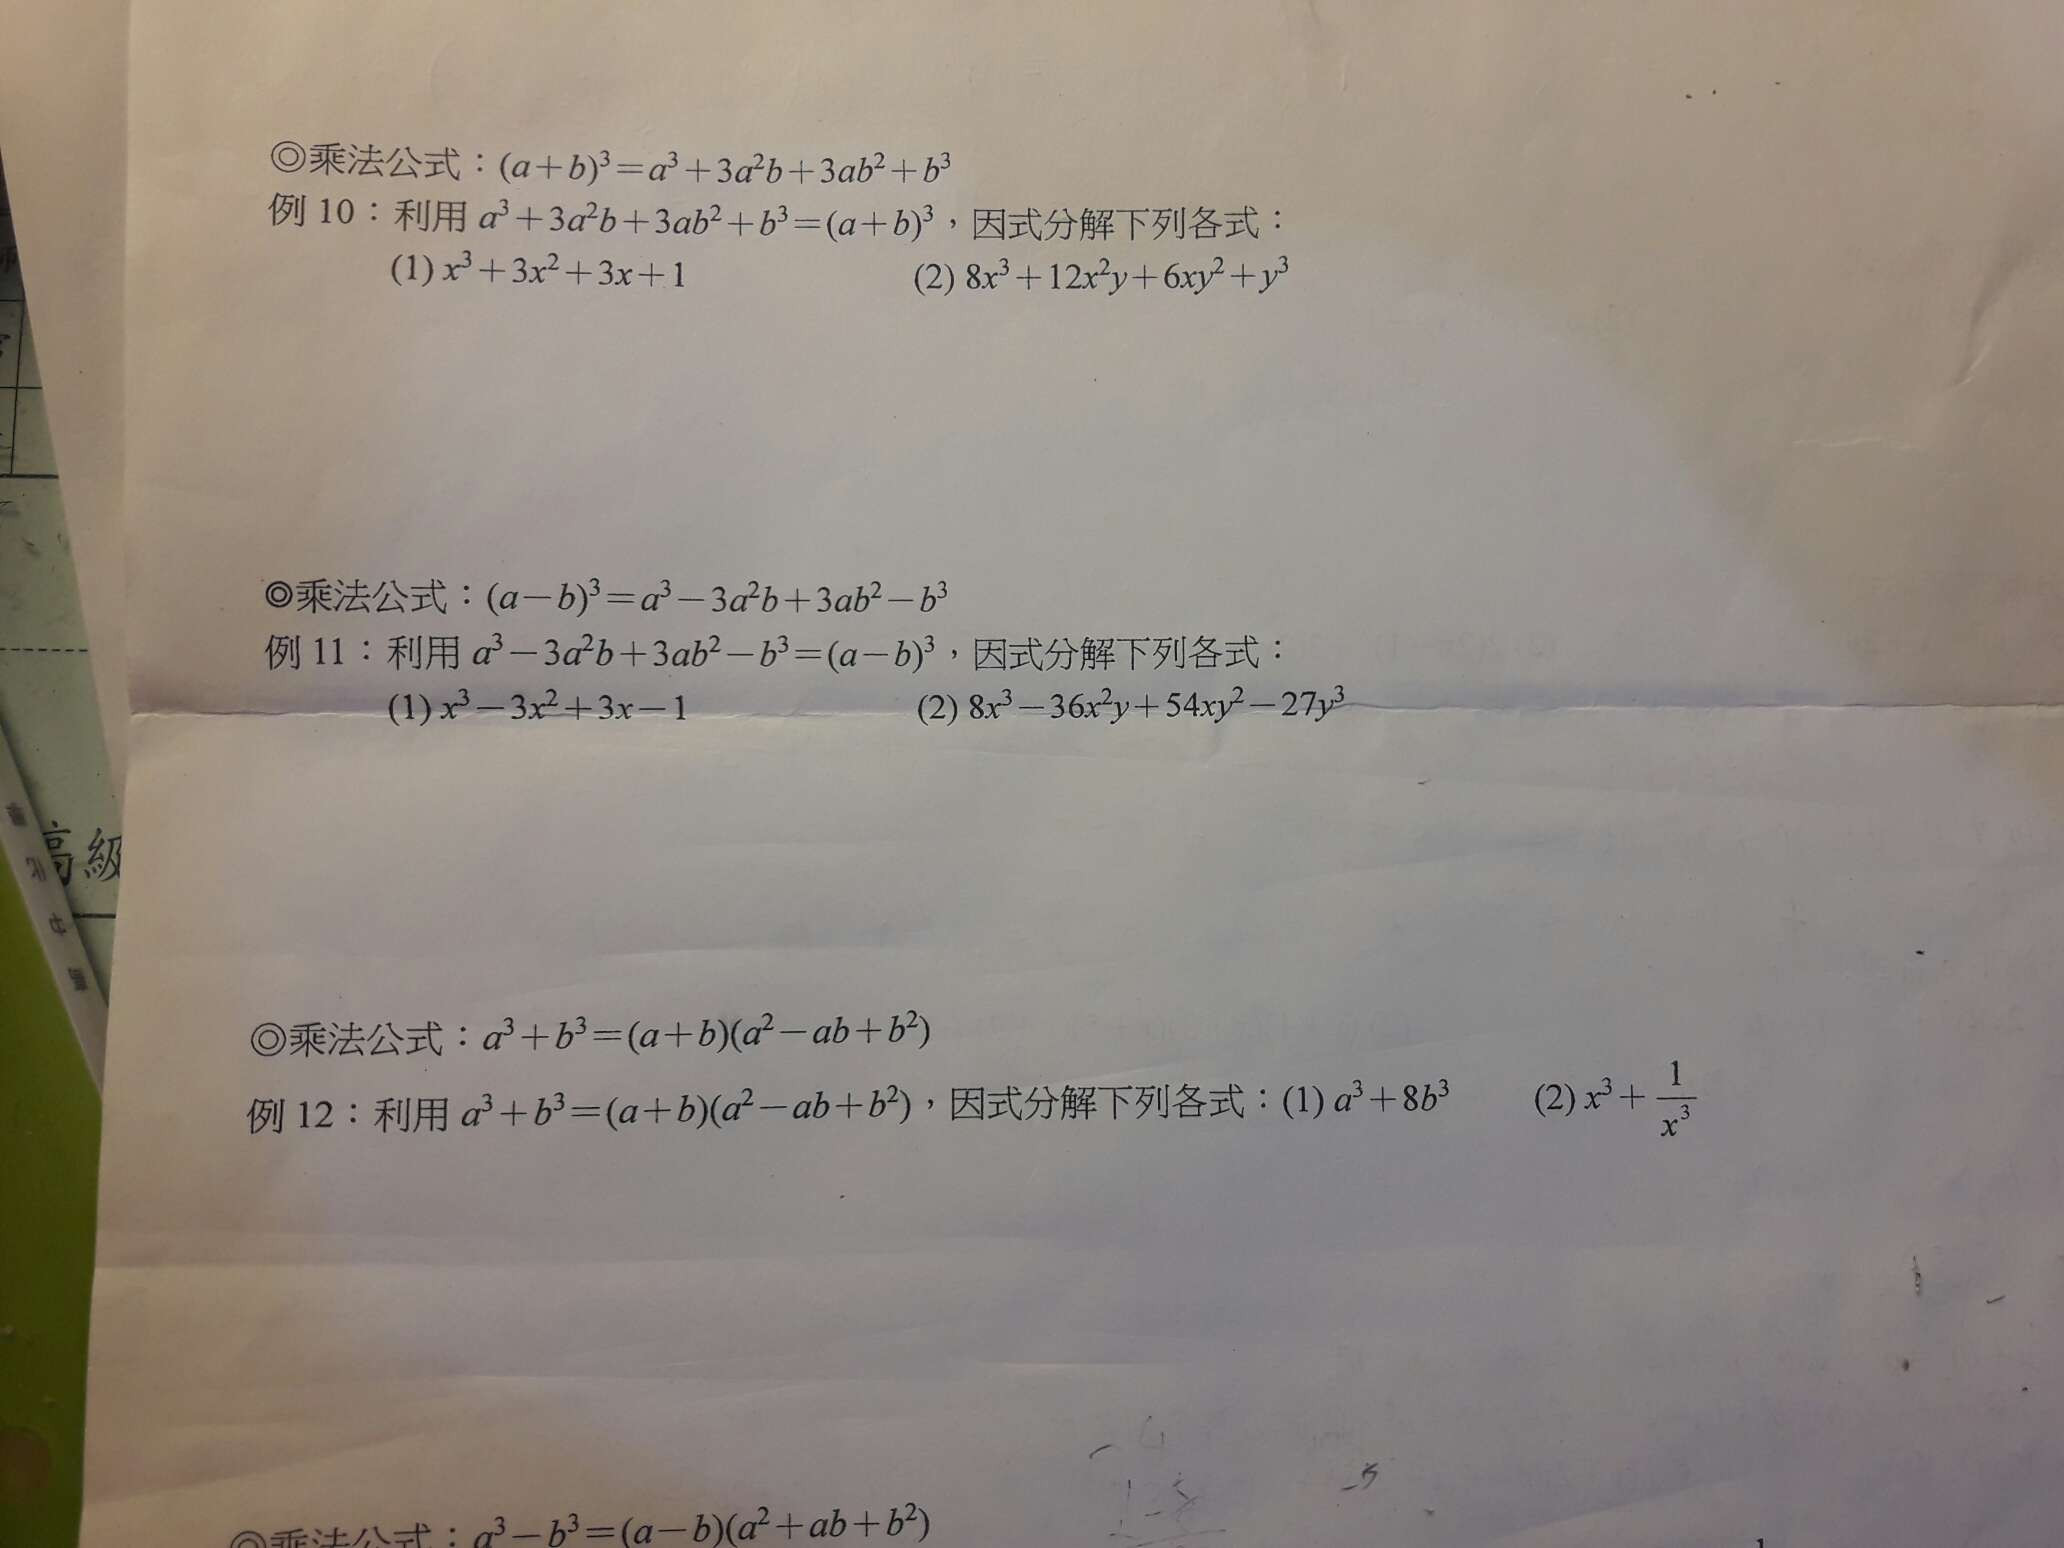 ◎乘法公式：(a+b)³=a³+3a²b+3ab²+b³
例 10：利用 a³+3a²b+3ab²+b³=(a+b)³，因式分解下列各式：
(1) x³+3x²+3x+1 (2) 8x³+12x²y+6xy²+y³
◎乘法公式：(a−b)³=a³−3a²b+3ab²−b³
例 11：利用 a³−3a²b+3ab²−b³=(a−b)³，因式分解下列各式：
(1) x³−3x²+3x−1 (2) 8x³−36x²y+54xy²−27y³
高級
◎乘法公式：a³+b³=(a+b)(a²−ab+b²)
例 12：利用 a³+b³=(a+b)(a²−ab+b²)，因式分解下列各式：(1) a³+8b³ (2) x³+1/x³
◎乘法公式：a³−b³=(a−b)(a²+ab+b²)